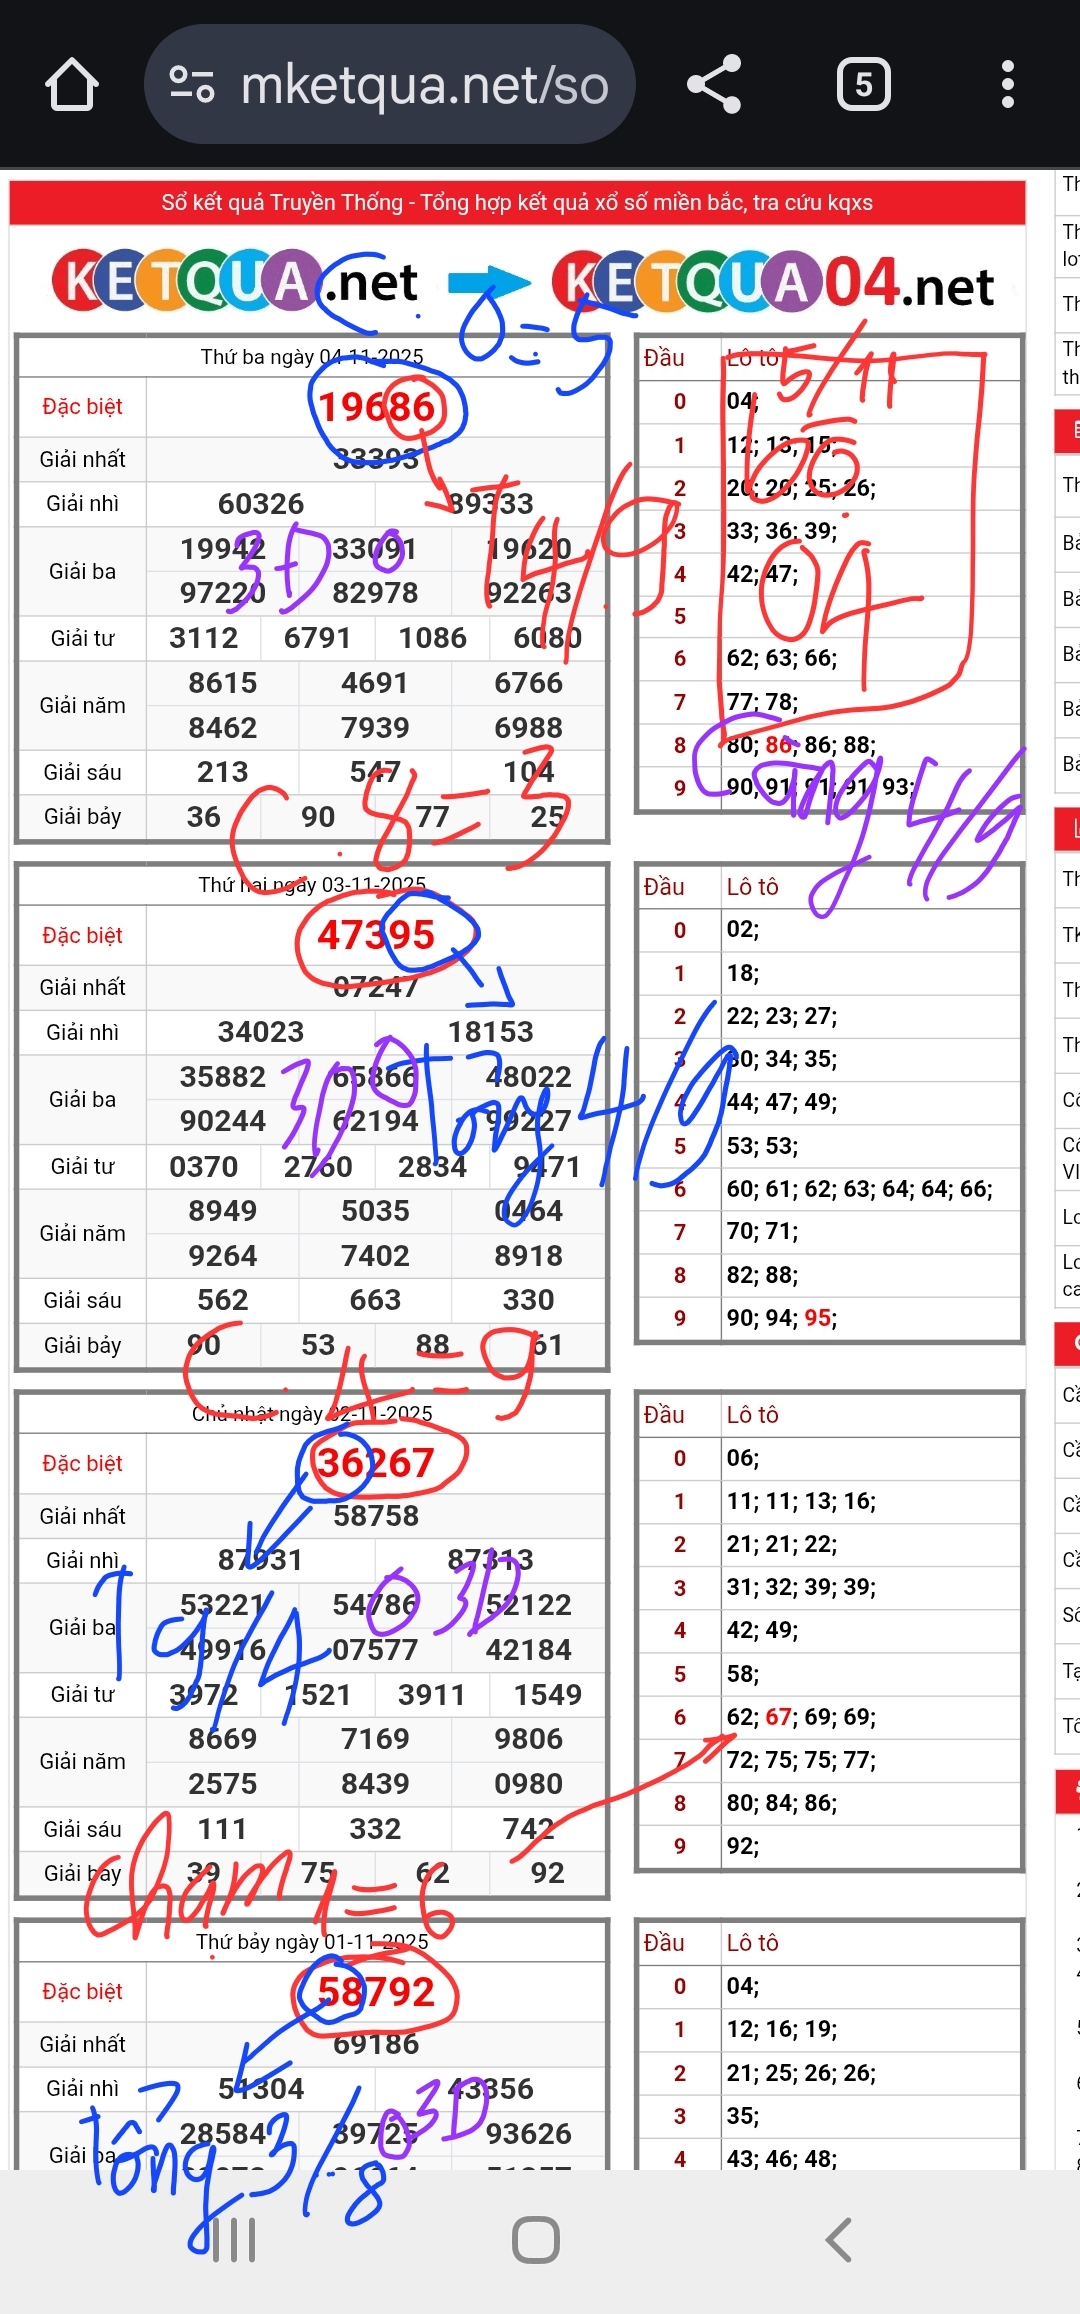 mketqua.net/so
5
Sổ kết quả Truyền Thống - Tổng hợp kết quả xổ số miền bắc, tra cứu kqxs
KETQUA.net KETQUA04.net
C. 0 = 5
Thứ ba ngày 04-11-2025
Đặc biệt 19686
Giải nhất 33393
Giải nhì 60326 89333
Giải ba 19942 33091 19620
97220 82978 92263
3D 0
T4/9
Giải tư 3112 6791 1086 6080
Giải năm 8615 4691 6766
8462 7939 6988
Giải sáu 213 547 104
Giải bảy 36 90 77 25
C. 8 = 3
Đầu Lô tô
0 04;
1 12; 13; 15;
2 20; 20; 25; 26;
3 33; 36; 39;
4 42; 47;
5
6 62; 63; 66;
7 77; 78;
8 80; 86; 86; 88;
9 90; 91; 91; 91; 93;
5/11
04
Càng 4/9
Thứ hai ngày 03-11-2025
Đặc biệt 47395
Giải nhất 07247
Giải nhì 34023 18153
Giải ba 35882 65866 48022
90244 62194 99227
3D 0
Tổng 4/9
Giải tư 0370 2760 2834 9471
Giải năm 8949 5035 0464
9264 7402 8918
Giải sáu 562 663 330
Giải bảy 90 53 88 61
C. 4 = 9
Đầu Lô tô
0 02;
1 18;
2 22; 23; 27;
3 30; 34; 35;
4 44; 47; 49;
5 53; 53;
6 60; 61; 62; 63; 64; 64; 66;
7 70; 71;
8 82; 88;
9 90; 94; 95;
Chủ nhật ngày 02-11-2025
Đặc biệt 36267
Giải nhất 58758
Giải nhì 87931 87313
Giải ba 53221 54786 52122
49916 07577 42184
0 3D
T 9/4
Giải tư 3972 1521 3911 1549
Giải năm 8669 7169 9806
2575 8439 0980
Giải sáu 111 332 742
Giải bảy 39 75 62 92
Chạm 1 = 6
Đầu Lô tô
0 06;
1 11; 11; 13; 16;
2 21; 21; 22;
3 31; 32; 39; 39;
4 42; 49;
5 58;
6 62; 67; 69; 69;
7 72; 75; 75; 77;
8 80; 84; 86;
9 92;
Thứ bảy ngày 01-11-2025
Đặc biệt 58792
Giải nhất 69186
Giải nhì 51304 43356
Giải ba 28584 39725 93626
0 3D
Tổng 3/8
Đầu Lô tô
0 04;
1 12; 16; 19;
2 21; 25; 26; 26;
3 35;
4 43; 46; 48;